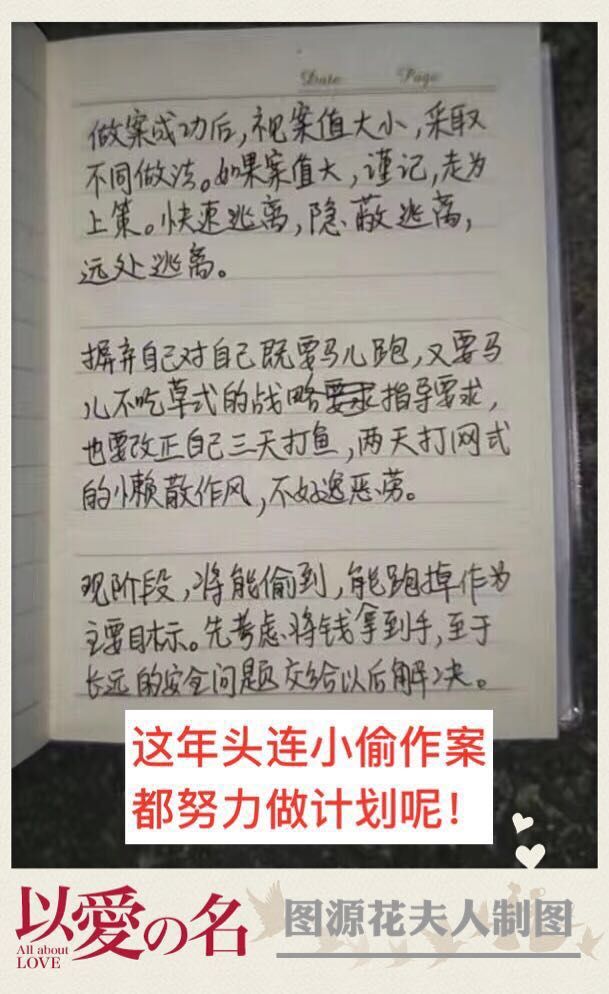 Date Page
做案成功后，视案值大小，采取
不同做法。如果案值大，谨记，走为
上策。快速逃离，隐蔽逃离，
远处逃离。
摒弃自己对自己既要马儿跑，又要马
儿不吃草式的战略指导要求，
也要改正自己三天打鱼，两天打网式
的懒散作风，不好逸恶劳。
现阶段，将能偷到，能跑掉作为
主要目标。先考虑将钱拿到手，至于
长远的安全问题交给以后解决。
这年头连小偷作案
都努力做计划呢！
以愛の名
All about
LOVE
图源花夫人制图